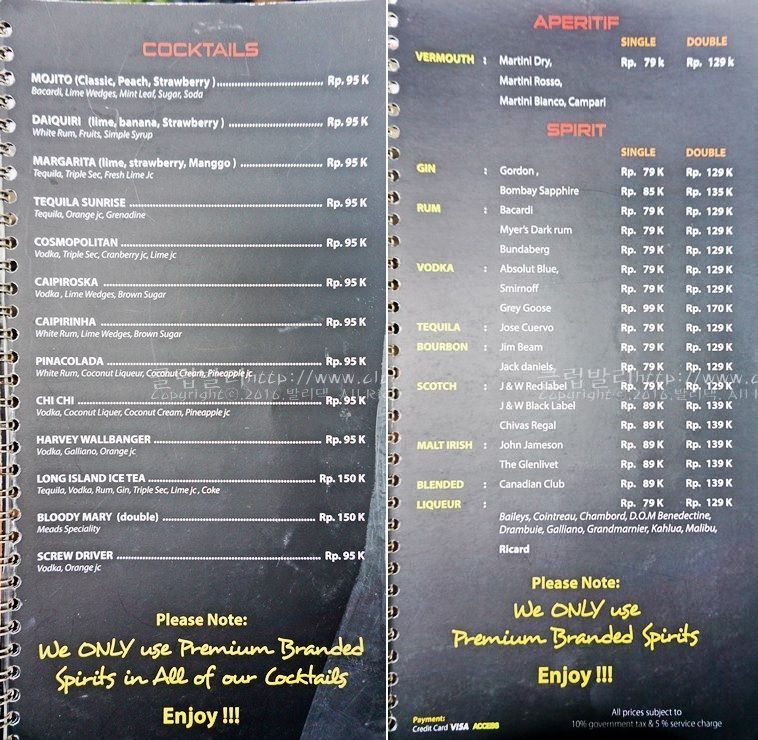 COCKTAILS
MOJITO (Classic, Peach, Strawberry ) Rp. 95 K
Bacardi, Lime Wedges, Mint Leaf, Sugar, Soda
DAIQUIRI (lime, banana, Strawberry ) Rp. 95 K
White Rum, Fruits, Simple Syrup
MARGARITA (lime, strawberry, Manggo ) Rp. 95 K
Tequila, Triple Sec, Fresh Lime Jc
TEQUILA SUNRISE Rp. 95 K
Tequila, Orange jc, Grenadine
COSMOPOLITAN Rp. 95 K
Vodka, Triple Sec, Cranberry jc, Lime jc
CAIPIROSKA Rp. 95 K
Vodka , Lime Wedges, Brown Sugar
CAIPIRINHA Rp. 95 K
White Rum, Lime Wedges, Brown Sugar
PINACOLADA Rp. 95 K
White Rum, Coconut Liqueur, Coconut Cream, Pineapple jc
CHI CHI Rp. 95 K
Vodka, Coconut Liquer, Coconut Cream, Pineapple jc
HARVEY WALLBANGER Rp. 95 K
Vodka, Galliano, Orange jc
LONG ISLAND ICE TEA Rp. 150 K
Tequila, Vodka, Rum, Gin, Triple Sec, Lime jc , Coke
BLOODY MARY (double) Rp. 150 K
Meads Speciality
SCREW DRIVER Rp. 95 K
Vodka, Orange jc
Please Note:
We ONLY use Premium Branded
Spirits in All of our Cocktails
Enjoy !!!
APERITIF
SINGLE DOUBLE
VERMOUTH : Martini Dry, Rp. 79 k Rp. 129 k
Martini Rosso,
Martini Bianco, Campari
SPIRIT
SINGLE DOUBLE
GIN : Gordon , Rp. 79 K Rp. 129 K
Bombay Sapphire Rp. 85 K Rp. 135 K
RUM : Bacardi Rp. 79 K Rp. 129 K
Myer's Dark rum Rp. 79 K Rp. 129 K
Bundaberg Rp. 79 K Rp. 129 K
VODKA : Absolut Blue, Rp. 79 K Rp. 129 K
Smirnoff Rp. 79 K Rp. 129 K
Grey Goose Rp. 99 K Rp. 170 K
TEQUILA : Jose Cuervo Rp. 79 K Rp. 129 K
BOURBON : Jim Beam Rp. 79 K Rp. 129 K
Jack daniels Rp. 79 K Rp. 129 K
SCOTCH : J & W Red label Rp. 79 K Rp. 129 K
J & W Black Label Rp. 89 K Rp. 139 K
Chivas Regal Rp. 89 K Rp. 139 K
MALT IRISH : John Jameson Rp. 89 K Rp. 139 K
The Glenlivet Rp. 89 K Rp. 139 K
BLENDED : Canadian Club Rp. 89 K Rp. 139 K
LIQUEUR : Rp. 79 K Rp. 129 K
Baileys, Cointreau, Chambord, D.O.M Benedectine,
Drambuie, Galliano, Grandmarnier, Kahlua, Malibu,
Ricard
Please Note:
We ONLY use
Premium Branded Spirits
Enjoy !!!
Payment:
Credit Card VISA ACCESS
All prices subject to
10% government tax & 5 % service charge
클럽발리http://www.cl
Copyright © 2016 발리댁, All